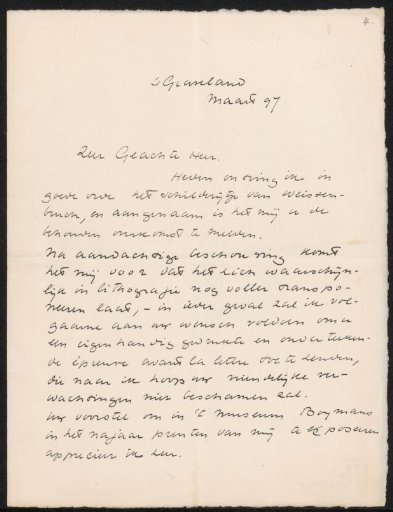 4.
's Graveland
Maart 97
Zeer Geachte Heer.
Heden ontving ik in
goede orde het schilderijtje van Weissen-
bruch, en aangenaam is het mij u de
behouden overkomst te melden.
Na aandachtige beschouwing komt
het mij voor dat het zich waarschijn-
lijk in lithografie nog voller transpo-
neeren laat, – in ieder geval zal ik vol-
gaarne aan uw wensch voldoen om u
een eigenhandig gedrukte en onderteeken-
de épreuve avant la lettre toe te zenden,
die naar ik hoop uw vriendelijke ver-
wachtingen niet beschamen zal.
Uw voorstel om in 't museum Boymans
in het najaar prenten van mij te exposeeren
apprecieer ik zeer.